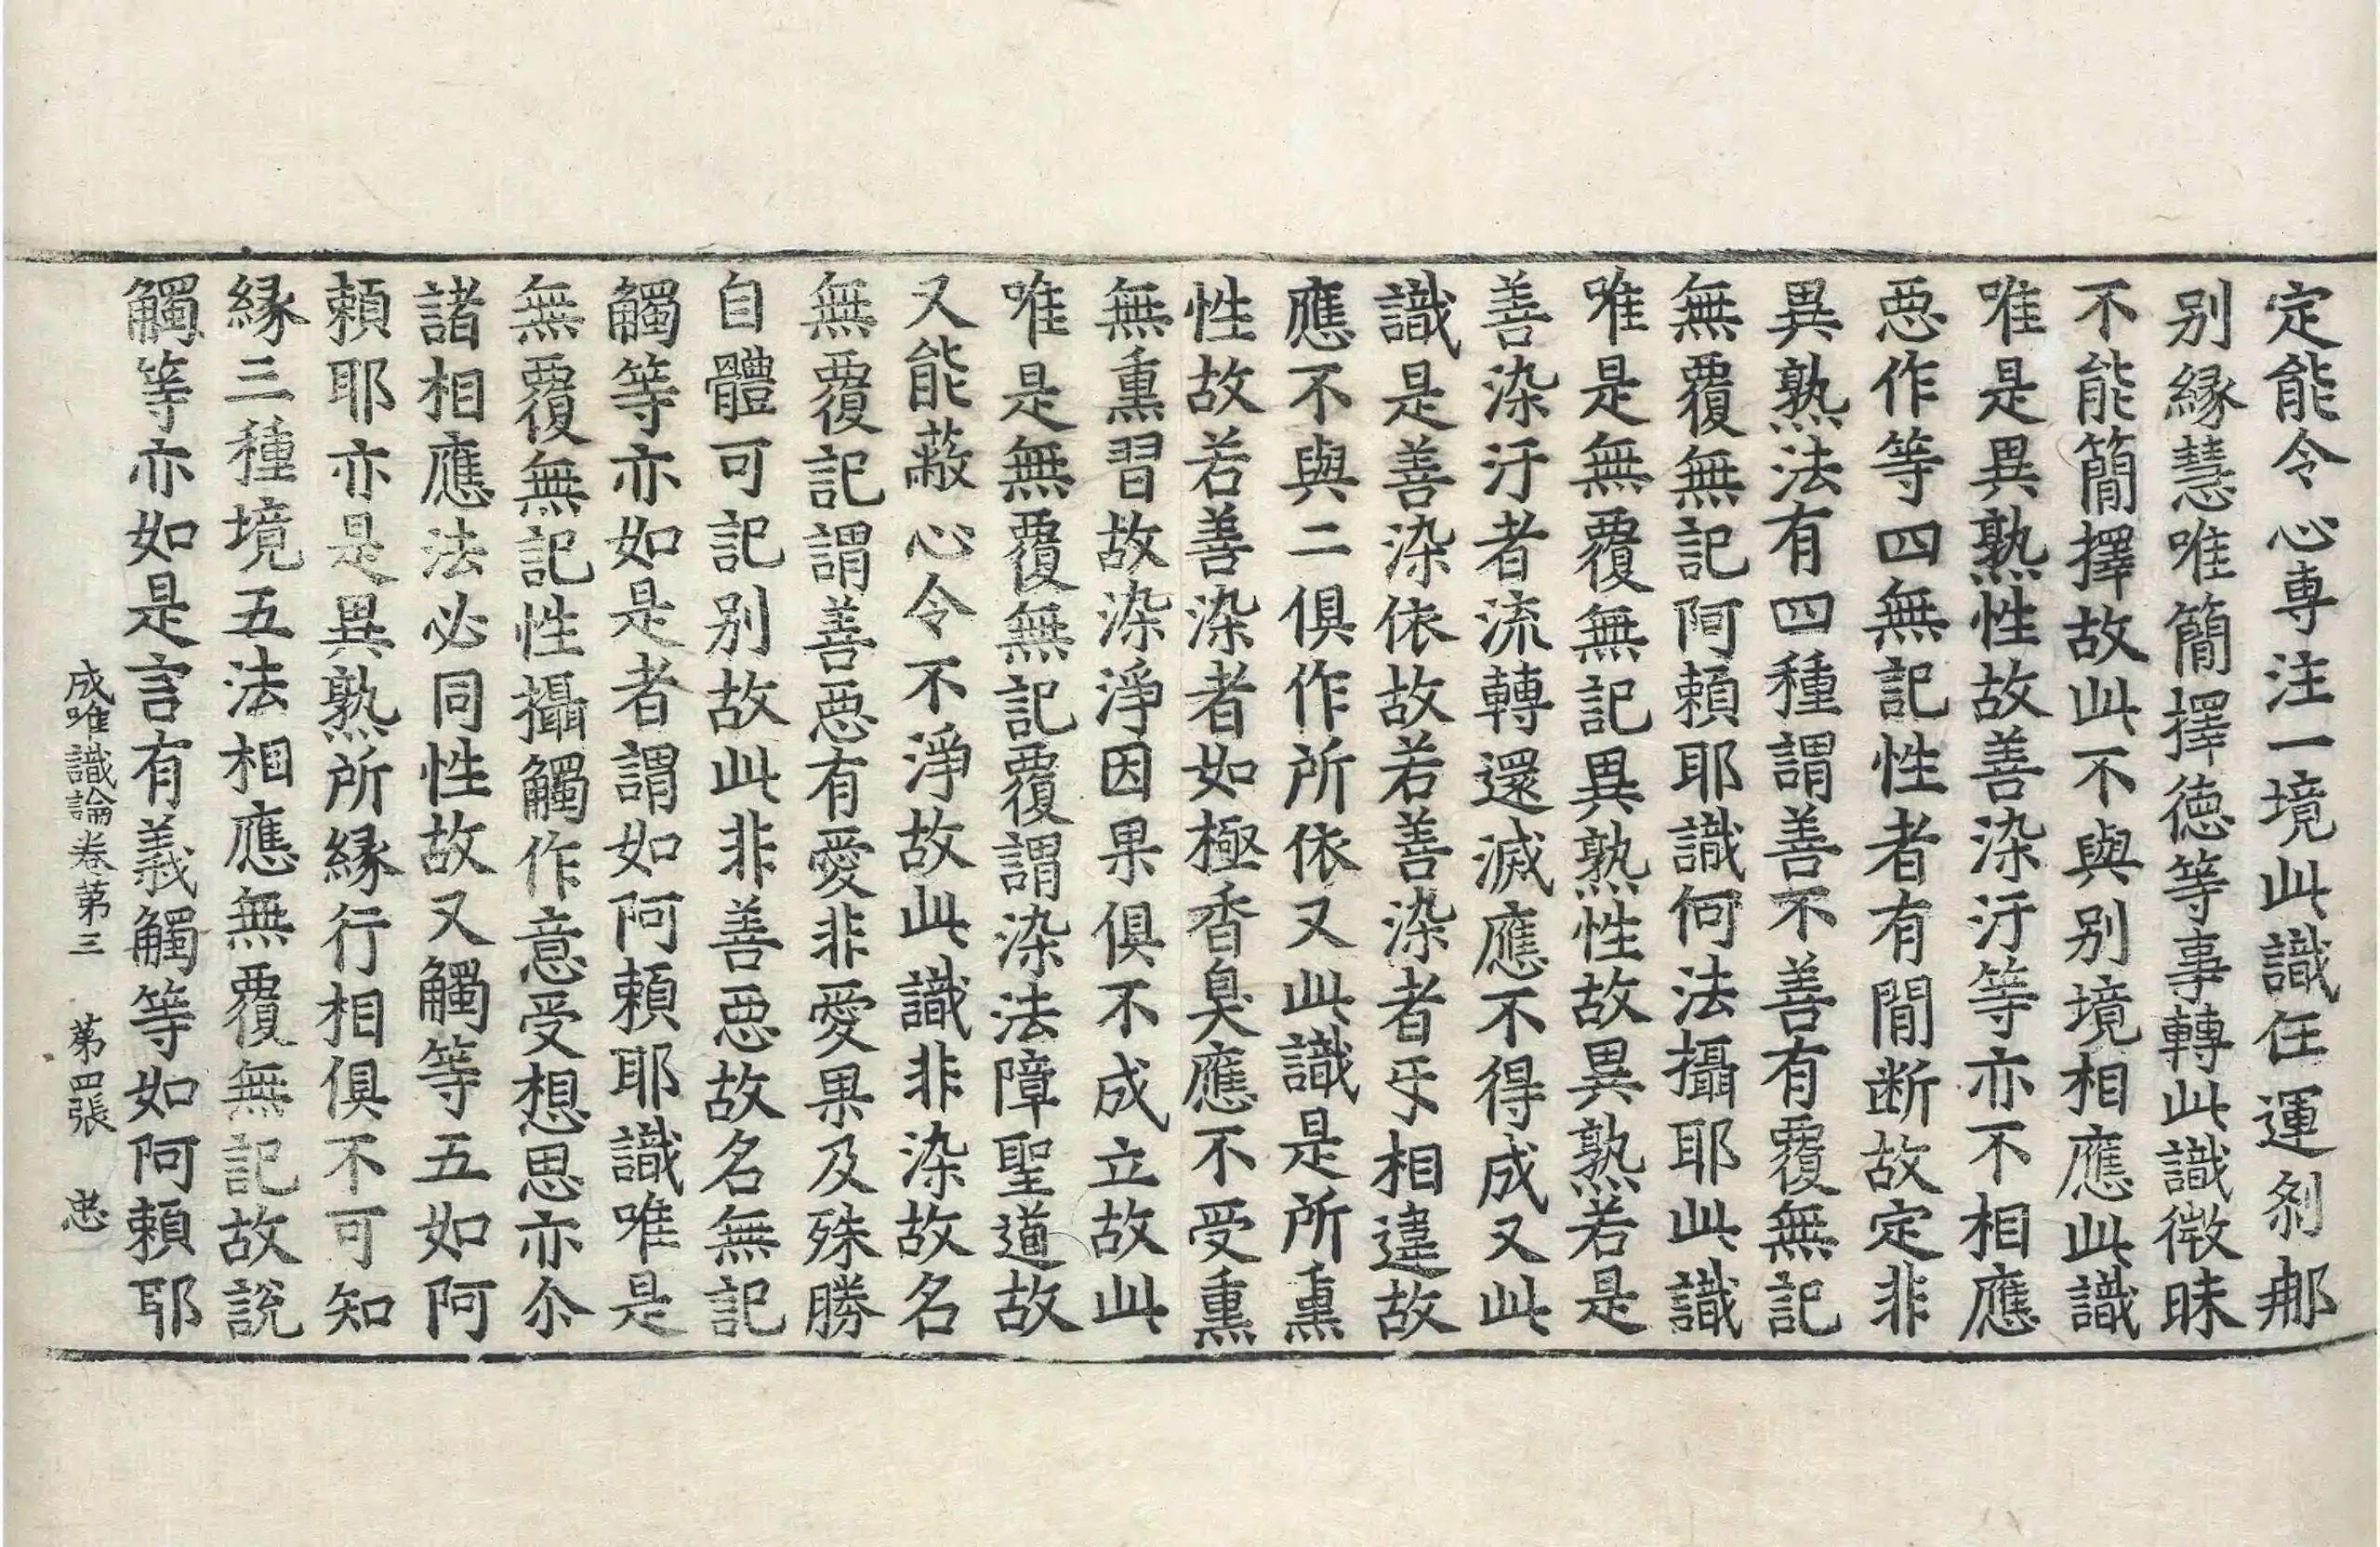 定能令心専注一境此識任運刹那
别縁慧唯簡擇徳等事轉此識微昧
不能簡擇故此不與别境相應此識
唯是異熟性故善染汙等亦不相應
惡作等四無記性者有間断故定非
異熟法有四種謂善不善有覆無記
無覆無記阿頼耶識何法攝耶此識
唯是無覆無記異熟性故異熟若是
善染汙者流轉還滅應不得成又此
識是善染依故若善染者乐相違故
應不與二俱作所依又此識是所熏
性故若善染者如極香臭應不受熏
無熏習故染淨因果俱不成立故此
唯是無覆無記覆謂染法障聖道故
又能蔽心令不淨故此識非染故名
無覆記謂善惡有愛非愛果及殊勝
自體可記别故此非善惡故名無記
觸等亦如是者謂如阿頼耶識唯是
無覆無記性攝觸作意受想思亦尒
諸相應法必同性故又觸等五如阿
頼耶亦是異熟所縁行相俱不可知
縁三種境五法相應無覆無記故説
觸等亦如是言有義觸等如阿頼耶
成唯識論卷第三 第四張 忠